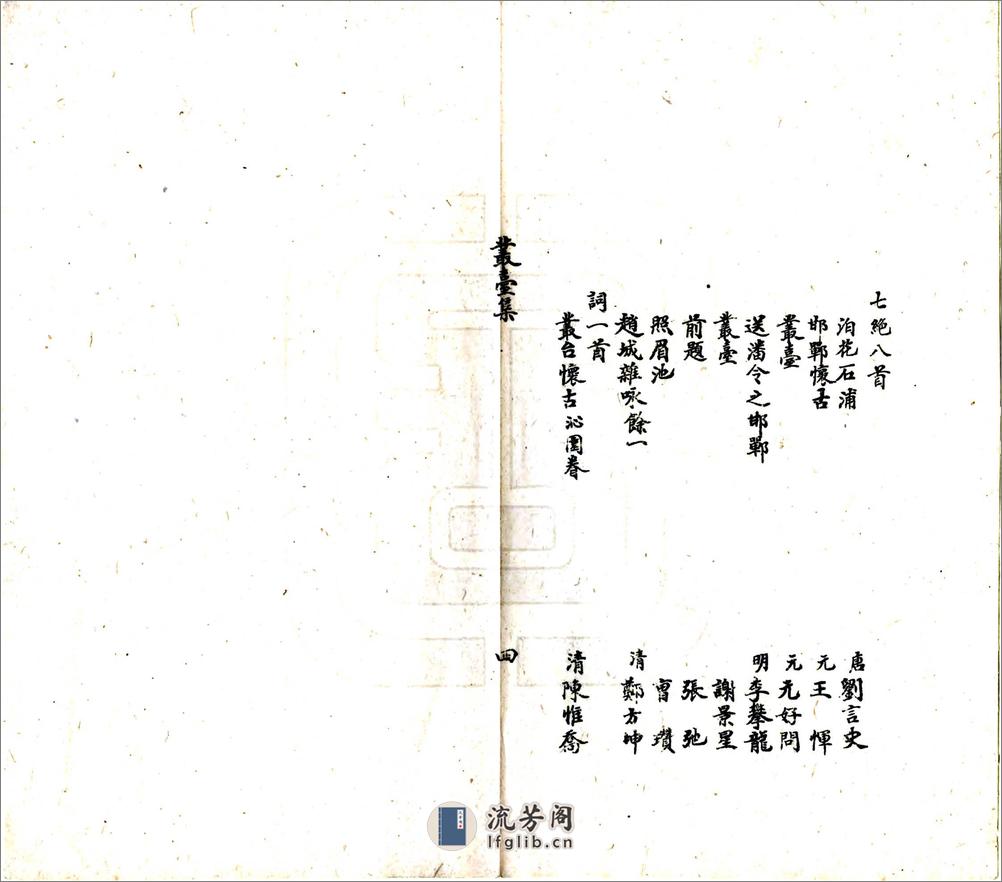 七絕八首
泊花石浦 唐 劉言史
邯鄲懷古 元 王惲
叢臺 元 元好問
送潘令之邯鄲 明 李攀龍
叢臺 謝景星
前題 張弛
照眉池 曹瓚
趙城雜咏餘一 清 鄭方坤
詞一首
叢台懷古 沁園春 清 陳惟喬
叢臺集
四
流芳阁
lfglib.cn